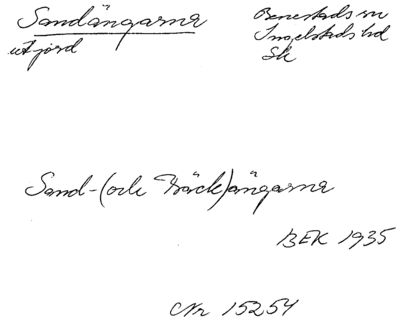 Sandängarna
utjord
Benestads sn
Ingelstads hd
Sk
Sand-(och Bäck)ängarna
BEK 1935
Nr 15254